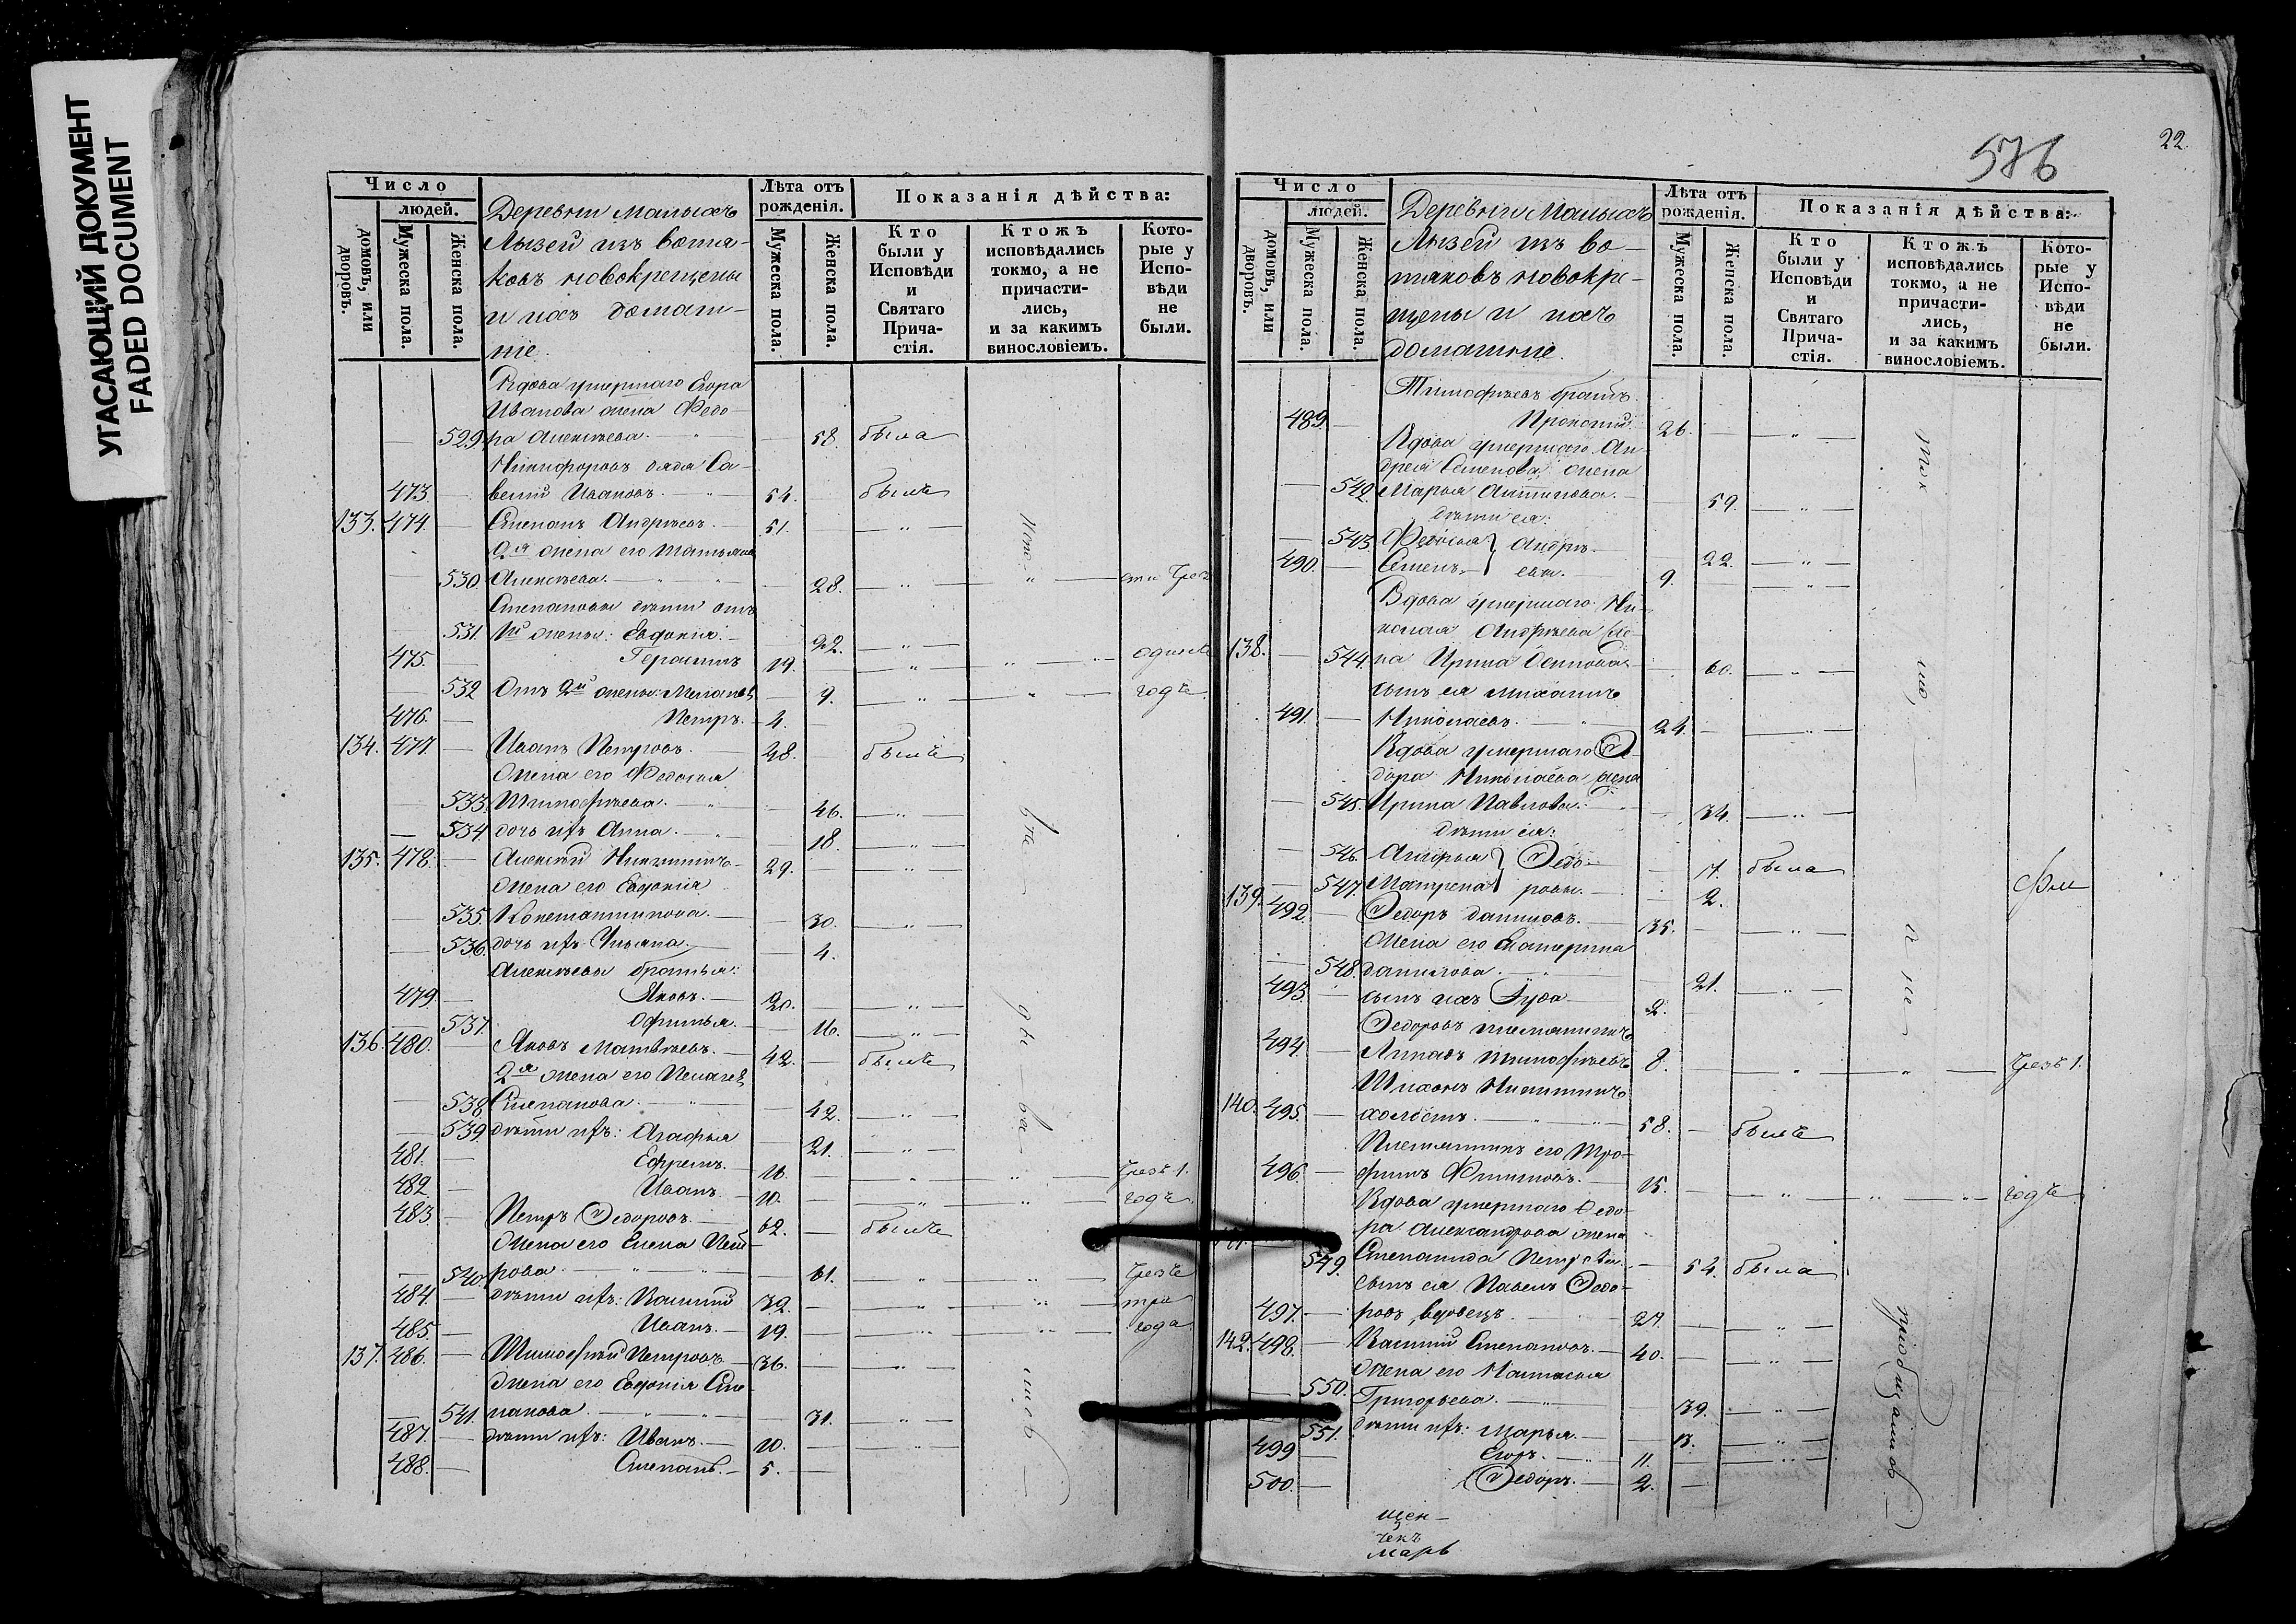 УГАСАЮЩИЙ ДОКУМЕНТ
FADED DOCUMENT
Число
людей.
домовъ, или дворовъ.
Мужеска пола.
Женска пола.
Деревни Малыхъ
Лызей изъ вотя-
ковъ новокрещены
и ихъ домаш-
ніе.
Лѣта отъ
рожденія.
Мужеска пола.
Женска пола.
Показанія дѣйства:
Кто
были у
Исповѣди
и
Святаго
Прича-
стія.
Ктожъ
исповѣдались
токмо, а не
причасти-
лись,
и за какимъ
винословіемъ.
Кото-
рые у
Испо-
вѣди
не
были.
Вдова умершаго Егора
Иванова жена Федо-
529 на Алексѣева. 58. была
Никифоровъ дядя Са-
473. велій Ивановъ. 54. былъ
133. 474. Степанъ Андреевъ. 51. — „ —
2я жена его Татьяна
530. Алексѣева. 28. — „ —
Степановы дѣти отъ
531 1й жены: Евдокія. 22. — „ —
475. Герасимъ 19. — „ —
532 Отъ 2й жены: 9. — „ — годъ.
476. Петръ. 4.
134. 477. Иванъ Петровъ. 48. былъ
Жена его Федосья
533. Тимофѣева. 46. — „ —
534. дочь ихъ Анна. 18. — „ —
135. 478. Алексѣй Никитинъ 29. — „ —
Жена его Евдокія
535. Константинова. 30. — „ —
536. дочь ихъ Ульяна. 4.
Алексѣевы братья:
479. Яковъ. 20. — „ —
537. Офимья. 16. — „ —
136. 480. Яковъ Матвѣевъ. 42. былъ
2я жена его Пелагея
538. Степанова. 42. — „ —
539 дѣти ихъ: Агафья 21. — „ —
481. Ефремъ. 16. — „ — чрезъ 1.
482. Иванъ. 10. — „ — годъ.
483. Петръ Федоровъ. 62. былъ
Жена его Елена Пет-
540. рова 61. — „ — чрезъ
484. дѣти ихъ: Василій 32. — „ — три
485. Иванъ. 19. — „ — года
137. 486. Тимофѣй Петровъ 36. — „ —
Жена его Евдокія Сте-
541. панова. 31. — „ —
487. дѣти ихъ: Иванъ. 10. — „ —
488. Степанъ. 5.
576
22.
Число
людей.
домовъ, или дворовъ.
Мужеска пола.
Женска пола.
Деревни Малыхъ
Лызей изъ во-
тяковъ новокре-
щены и ихъ
домашніе.
Лѣта отъ
рожденія.
Мужеска пола.
Женска пола.
Показанія дѣйства:
Кто
были у
Исповѣди
и
Святаго
Прича-
стія.
Ктожъ
исповѣдались
токмо, а не
причасти-
лись,
и за какимъ
винословіемъ.
Кото-
рые у
Испо-
вѣди
не
были.
Тимофѣевъ братъ
489. Прокопій. 26. — „ —
Вдова умершаго Ан-
дрея Семенова жена
542. Марья Антипова. 59. — „ —
дѣти ея:
543. Федосья } Андре- 22. — „ —
490. Семенъ евы. 9. — „ —
Вдова умершаго Ни-
колая Андреева же-
138. 544. на Ирина Осипова 60. — „ —
сынъ ея Михаилъ
491. Николаевъ. 24. — „ —
Вдова умершаго Фе-
дора Николаева жена
545. Ирина Павлова. 34. — „ —
дѣти ея:
546. } Федо- была
547. Матрена ровы. 2.
139. 492. Федоръ Даниловъ. 35. — „ —
Жена его Екатерина
548. Данилова. 21. — „ —
493. сынъ ихъ 2.
Федоровъ племянникъ
494. Тимофѣевъ 8. — „ — чрезъ 1.
Тихонъ Никитинъ
140. 495. холостъ. 58. былъ
Племянникъ его Тро-
496. фимъ Филиповъ. 15. — „ — годъ.
Вдова умершаго Федо-
ра Александрова жена
549. Степанида Петрова. 54. была
сынъ ея Павелъ Федо-
497. ровъ, вдовецъ. 27. — „ —
142. 498. Василій Степановъ. 40. — „ —
Жена его Настасья
550. Григорьева. 39. — „ —
551. дѣти ихъ: Марья. 13. — „ —
499 Егоръ. 11. — „ —
500. Федоръ. 2.